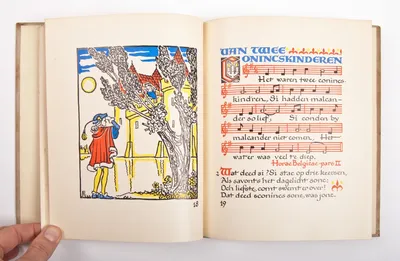 18
VAN TWEE
CONINCSKINDEREN
Het waren twee conincs
kindren, Si hadden malcan-
der so lief; Si conden by
malcander niet comen, Het
water was veel te diep.
Horae Belgicae pars II
2 Wat deed si? Si stac op drie keersen,
Als savonts het dagelicht sonc:
Och liefste, comt swemt er over!
Dat deed sconincs sone, was jonc.
19